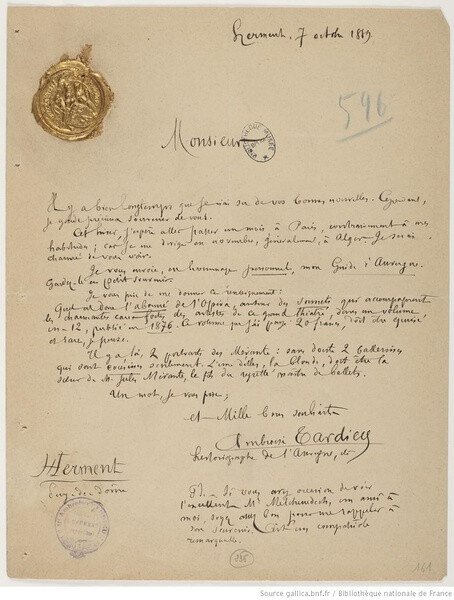 Herment, 7 octobre 1889
596
Monsieur
Il y a bien longtemps que je n'ai eu de vos bonnes nouvelles. Cependant,
je garde précieux souvenir de vous.
Cet hiver, j'espère aller passer un mois à Paris, contrairement à mes
habitudes; car je me dirige en novembre, généralement, à Alger. Je serai
charmé de vous voir.
Je vous envoie, en hommage personnel, mon Guide d'Auvergne.
Gardez-le en petit souvenir.
Je vous prie de me donner ce renseignement:
Quel est donc l'abonné de l'Opéra, auteur des sonnets qui accompagnent
les charmantes eaux fortes des artistes de ce grand théâtre, dans un volume
in-12, publié en 1876. Ce volume que j'ai payé 20 francs, doit être épuisé
et rare, je pense.
Il y a là, 2 portraits des Mérante: sans doute 2 ballerines
qui sont cousines seulement. L'une d'elles, la blonde, doit être la
sœur de M. Jules Mérante, le fils du regretté maître de ballets.
Un mot, je vous prie;
et Mille bons souhaits
Ambroise Tardieu
historiographe de l'Auvergne, &c
Herment
Puy-de-Dôme
P.S. Si vous avez occasion de voir
l'excellent Mr, un ami à
moi, soyez assez bon pour me rappeler à
son souvenir. C'est un compatriote
remarquable.
161
Source gallica.bnf.fr / Bibliothèque nationale de France